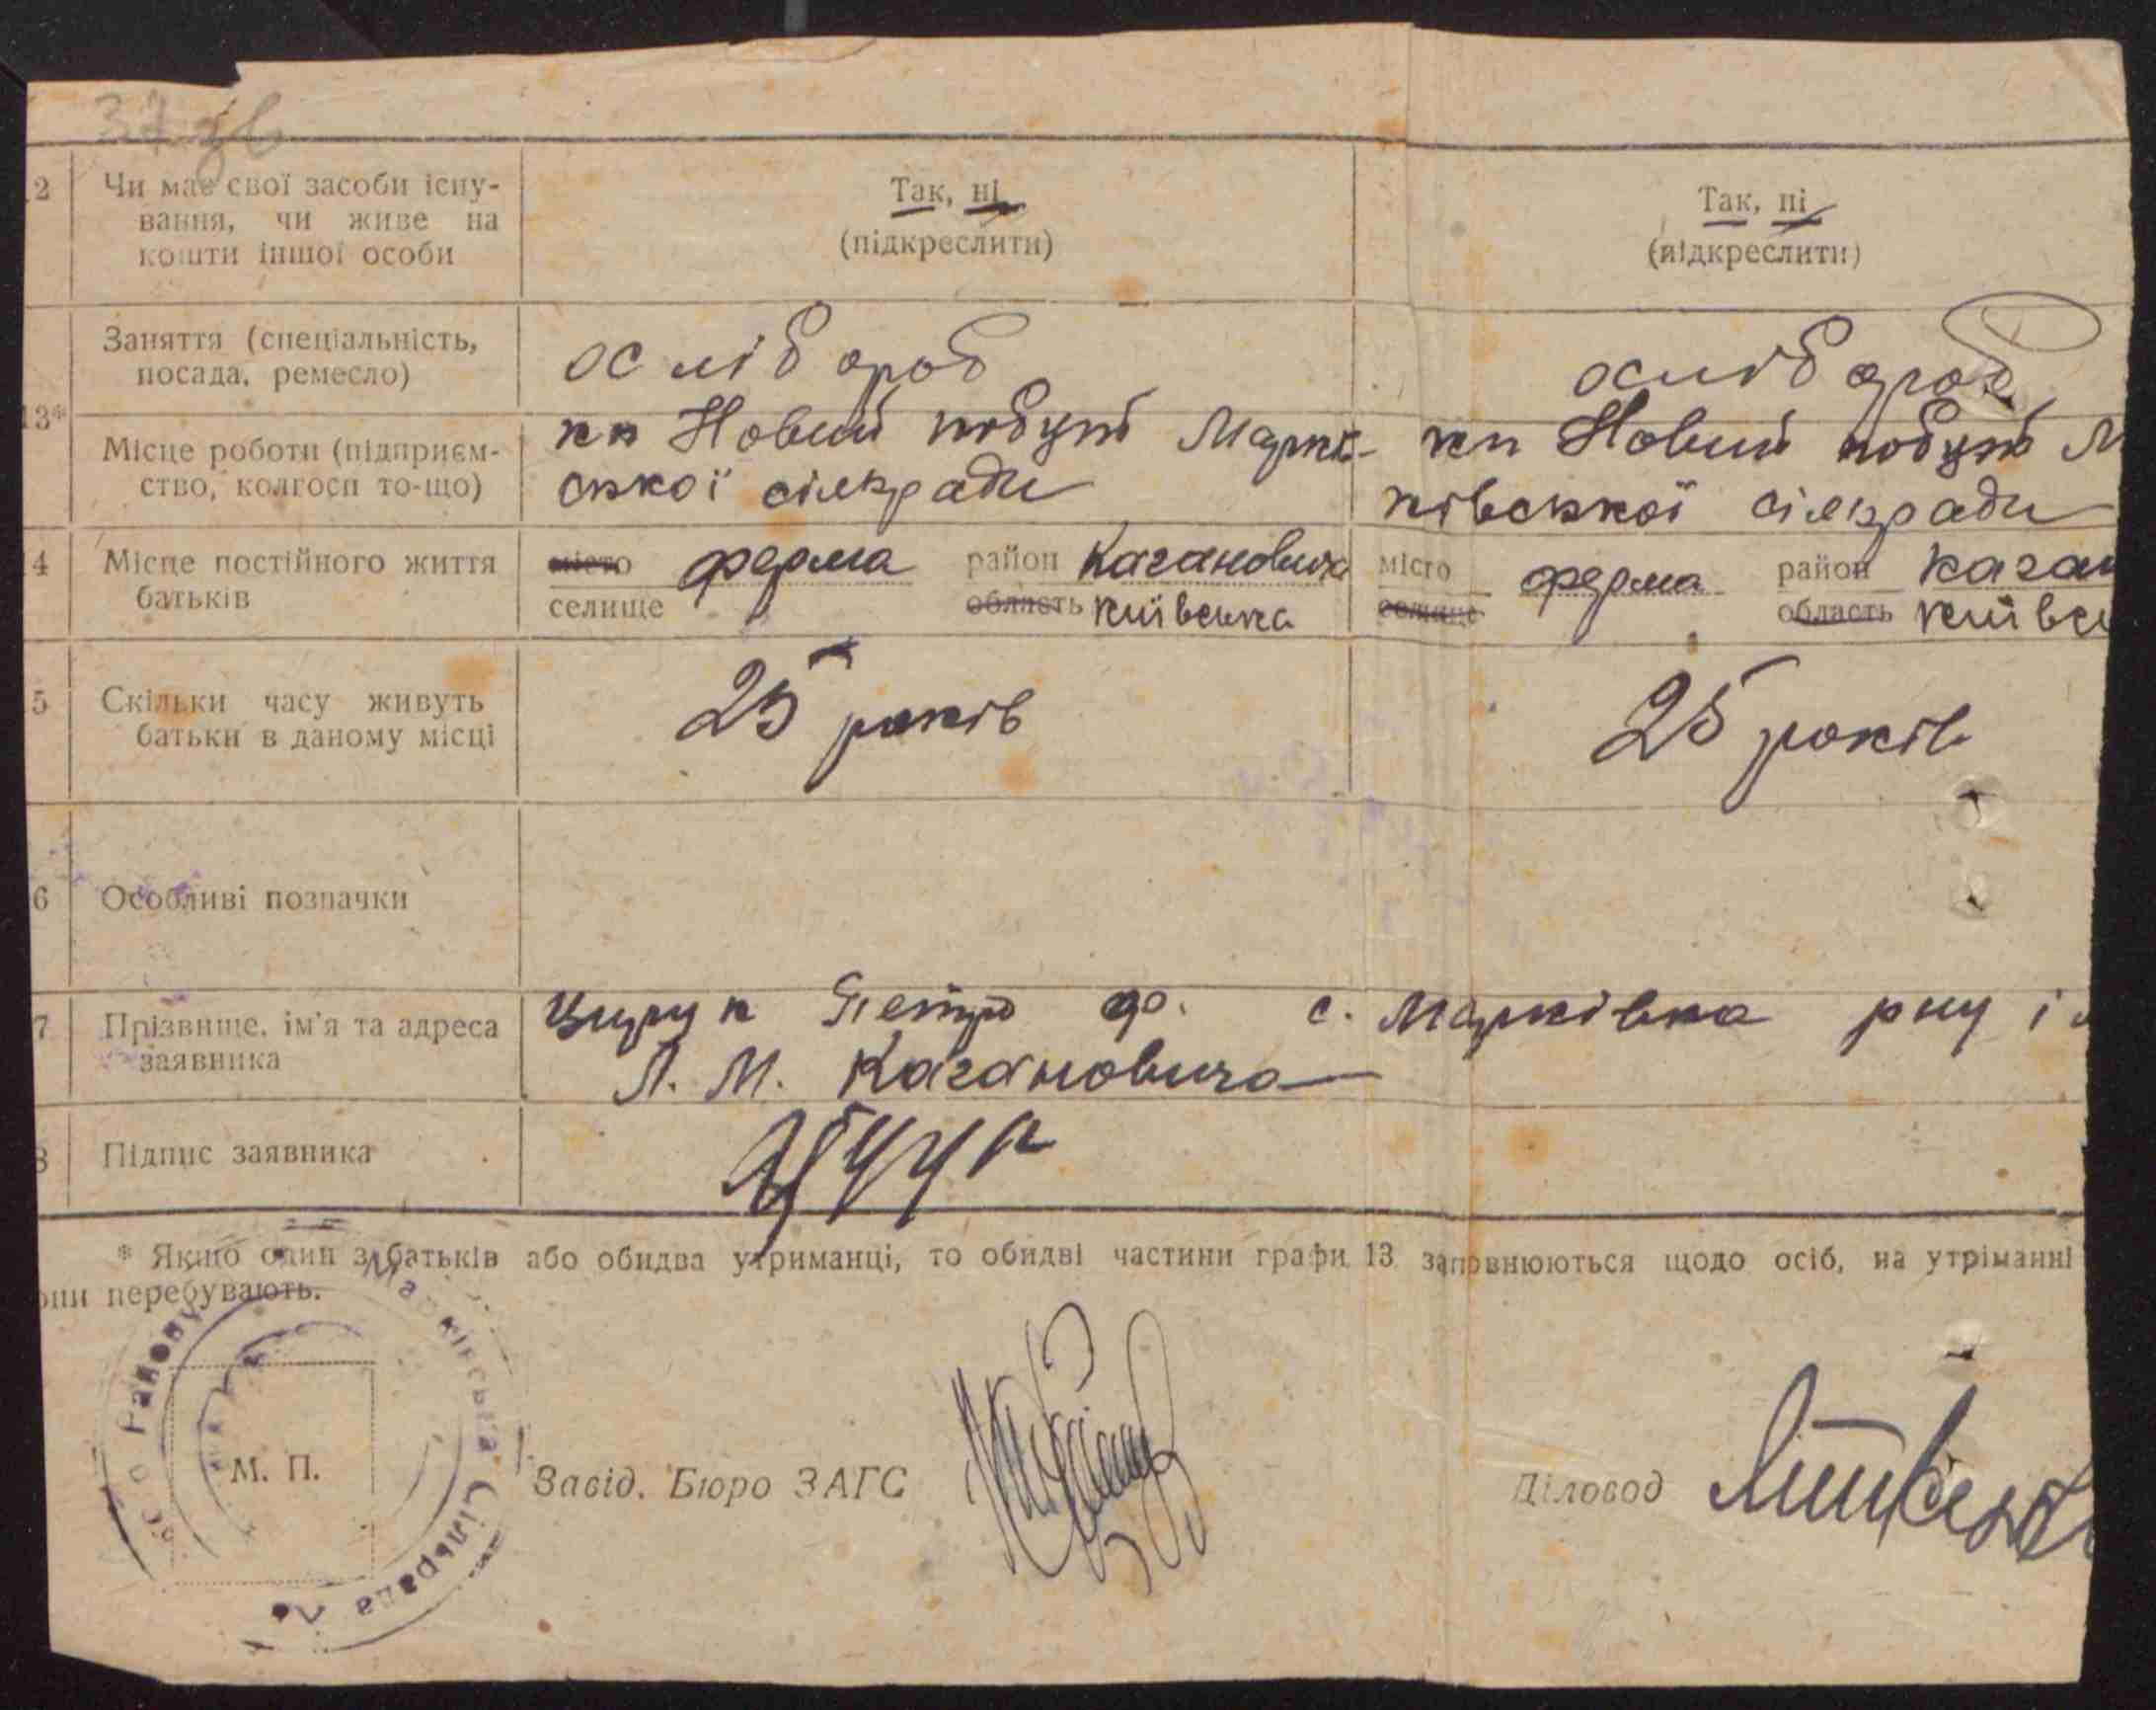 37 зв
2 Чи має свої засоби існу-
вання, чи живе на
кошти іншої особи
Так, ні
(підкреслити)
Так, ні
(підкреслити)
13* Заняття (спеціальність,
посада, ремесло)
Місце роботи (підприєм-
ство, колгосп то-що)
кп Новий побут Марків-
ської сілкради
кп Новий побут М
ківської сілкради
4 Місце постійного життя
батьків
місто ферма район Кагановича
селище область київська
місто ферма район Каган
селище область київсь
5 Скільки часу живуть
батьки в даному місці
25 років
25 років
6 Особливі позначки
7 Прізвище, ім'я та адреса
заявника
Цирук Петро ф. с. Марківка рну і
Л. М. Кагановича
8 Підпис заявника
* Якщо один з батьків або обидва утриманці, то обидві частини графи 13 заповнюються щодо осіб, на утріманні
они перебувають.
Марківська Сільрада
Району
М. П.
Завід. Бюро ЗАГС
Діловод